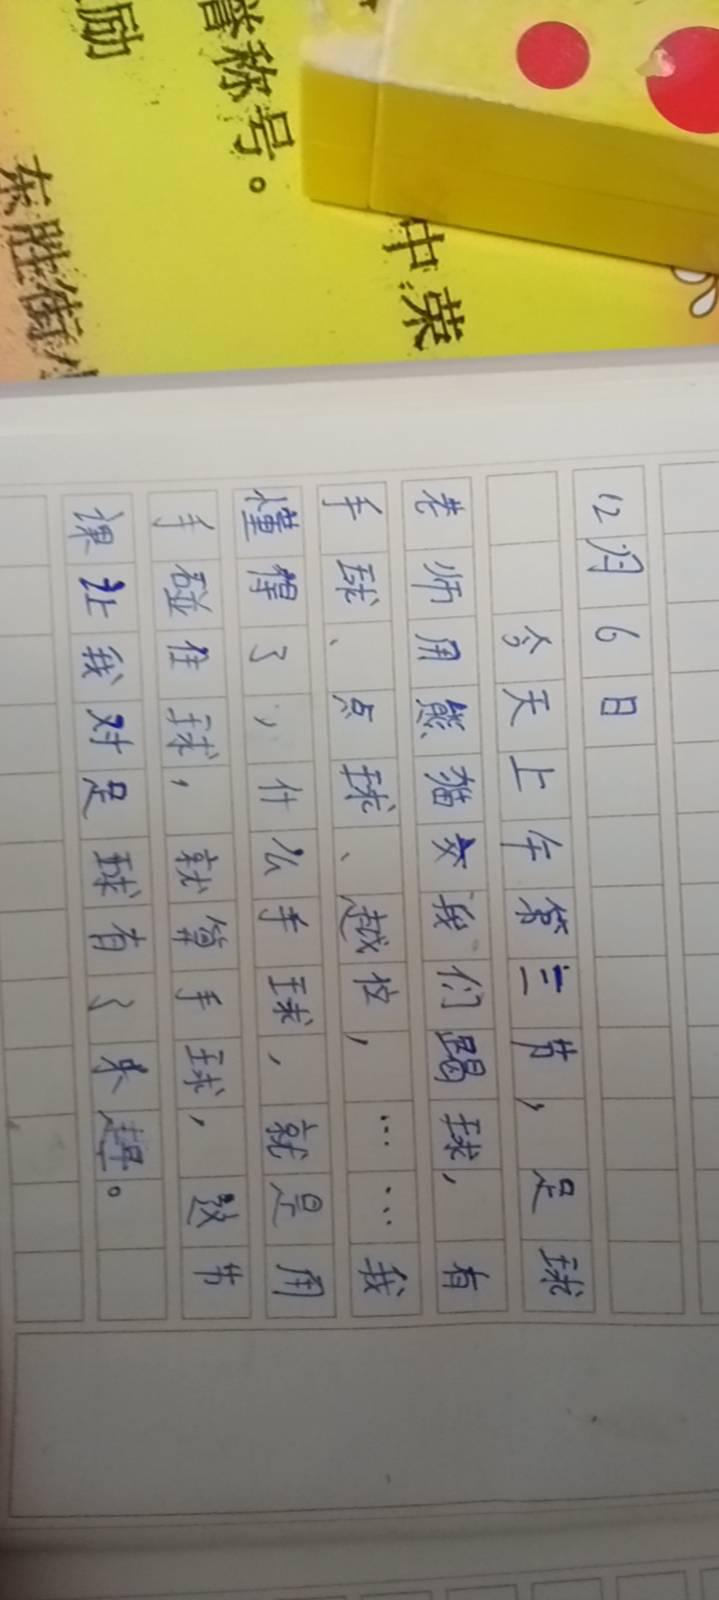 中荣
誉称号。
励
东胜街
12月6日
今天上午第三节，足球
老师用熊猫交我们踢球，有
手球、点球、越位，……我
懂得了，什么手球，就是用
手碰住球，就算手球，这节
课让我对足球有了乐趣。